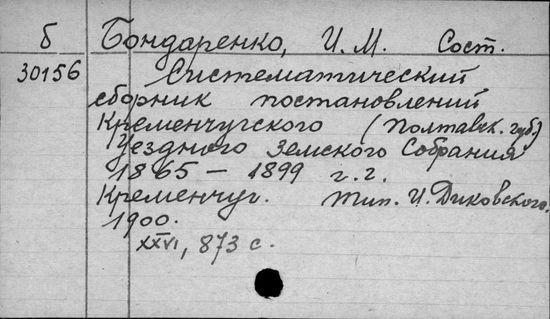 б Бондаренко, И. М. Сост.
30156 Систематический
сборник постановлений
Кременчугского (Полтавск. губ.)
Уездного Земского Собрания
1865 – 1899 г.г.
Кременчуг. Тип. И. Диковского.
1900.
XXVI, 873 с.